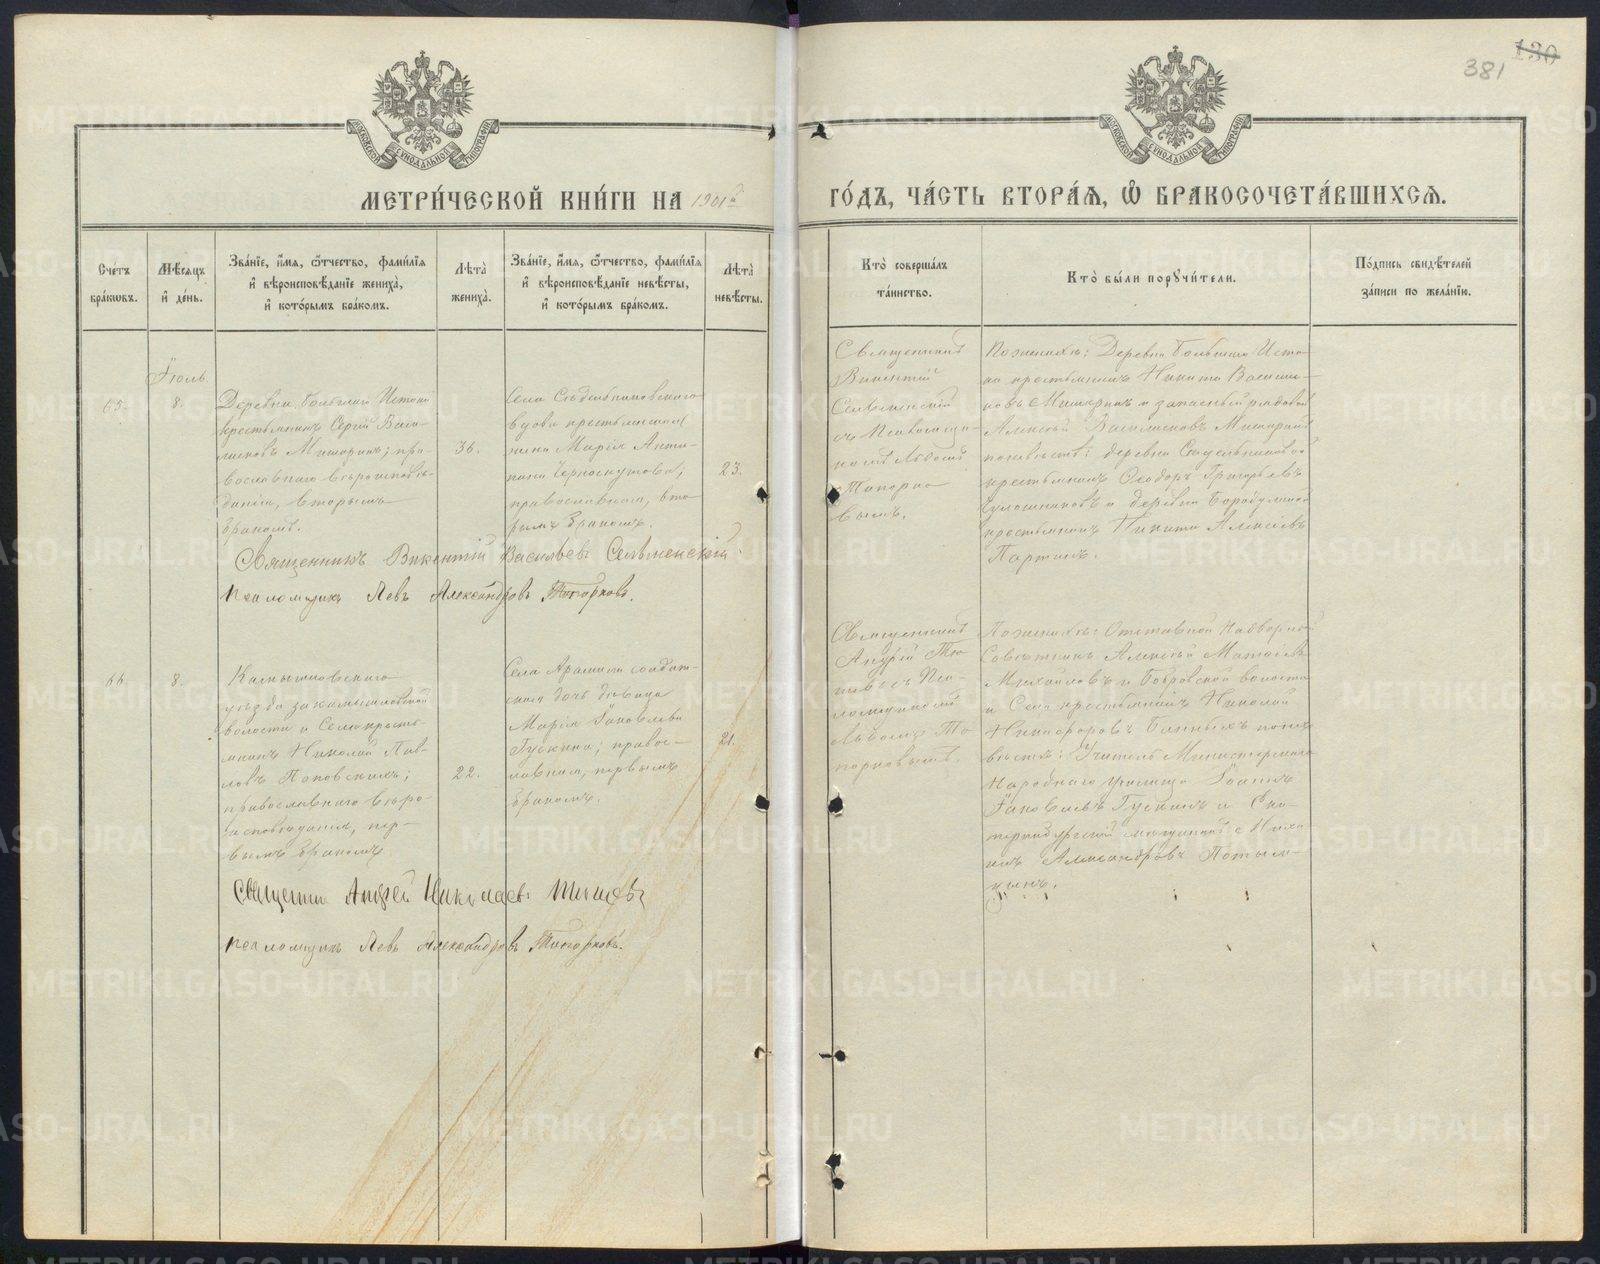 381
130
МОСКОВСКОЙ СѴНОДАЛЬНОЙ ТИПОГРАФІИ
МОСКОВСКОЙ СѴНОДАЛЬНОЙ ТИПОГРАФІИ
МЕТРИ́ЧЕСКОЙ КНИ́ГИ НА 1901й
ГО́ДЪ, ЧА́СТЬ ВТОРА́Я, Ѽ БРАКОСОЧЕТА́ВШИХСЯ.
Сче́тъ бра́ковъ.
Мѣ́сяцъ и де́нь.
Зва́нїе, и́мя, ѻ́тчество, фами́лїя
и вѣроисповѣ́данїе жениха̀,
и кото́рымъ бра́комъ.
Лѣта̀ жениха̀.
Зва́нїе, и́мя, ѻ́тчество, фами́лїя
и вѣроисповѣ́данїе невѣ́сты,
и кото́рымъ бра́комъ.
Лѣта̀ невѣ́сты.
Кто̀ соверша́лъ
та́инство.
Кто̀ бы́ли порꙋчи́тели.
По́дпись свидѣ́телей
за́писи по жела́нїю.
Іюль
65.
8.
Деревни Большаго Истока
крестьянинъ Сергій Васи-
ліевъ Мишаринъ; пра-
вославнаго вѣроисповѣ-
данія, вторымъ
бракомъ.
36.
Села
вдова крестьянская
Марія Анти-
пина Черноскутова,
православнаго, вто-
рымъ бракомъ.
23.
Священникъ
Викентій
Селѣменскій
съ Псаломщи-
комъ Львомъ
Топорко
вымъ.
По женихѣ: Деревни Большаго Исто-
ка крестьянинъ Никита Василье-
въ Мишаринъ и запасный рядовой
Алексѣй Васильевъ Мишаринъ
по невѣстѣ: деревни
крестьянинъ Ѳеодоръ Григорьевъ
и деревни Бородулиной
крестьянинъ Никита Алексѣевъ
Партинъ.
Священникъ Викентій Васильевъ Селѣменскій.
Псаломщикъ Левъ Александровъ Топорковъ.
66.
8.
Камышловскаго
уѣзда Закамышловской
волости и Села крестья-
нинъ Николай Пав-
ловъ Поповскихъ;
православнаго вѣро-
исповѣданія, пер-
вымъ бракомъ.
22.
Села Арамили солдат-
ская дочь дѣвица
Марія Іаковлева
Гуськина; правос-
лавная, первымъ
бракомъ.
21.
Священникъ
Андрей
съ Пса-
ломщикомъ
Львомъ То
порковымъ.
По женихѣ: Отставной Надворный
Совѣтникъ Алексѣй Матѳѣевъ
Михайловъ и Бобровской волости
и Села крестьянинъ Николай
Никифоровъ по не-
вѣстѣ: Учитель Министерскаго
Народнаго училища Іоаннъ
Іаковлевъ Гуськинъ и Ека-
теринбургскій мѣщанинъ
Александровъ
Священник Андрей Николаевъ
Псаломщикъ Левъ Александровъ Топорковъ.
METRIKI.GASO-URAL.RU